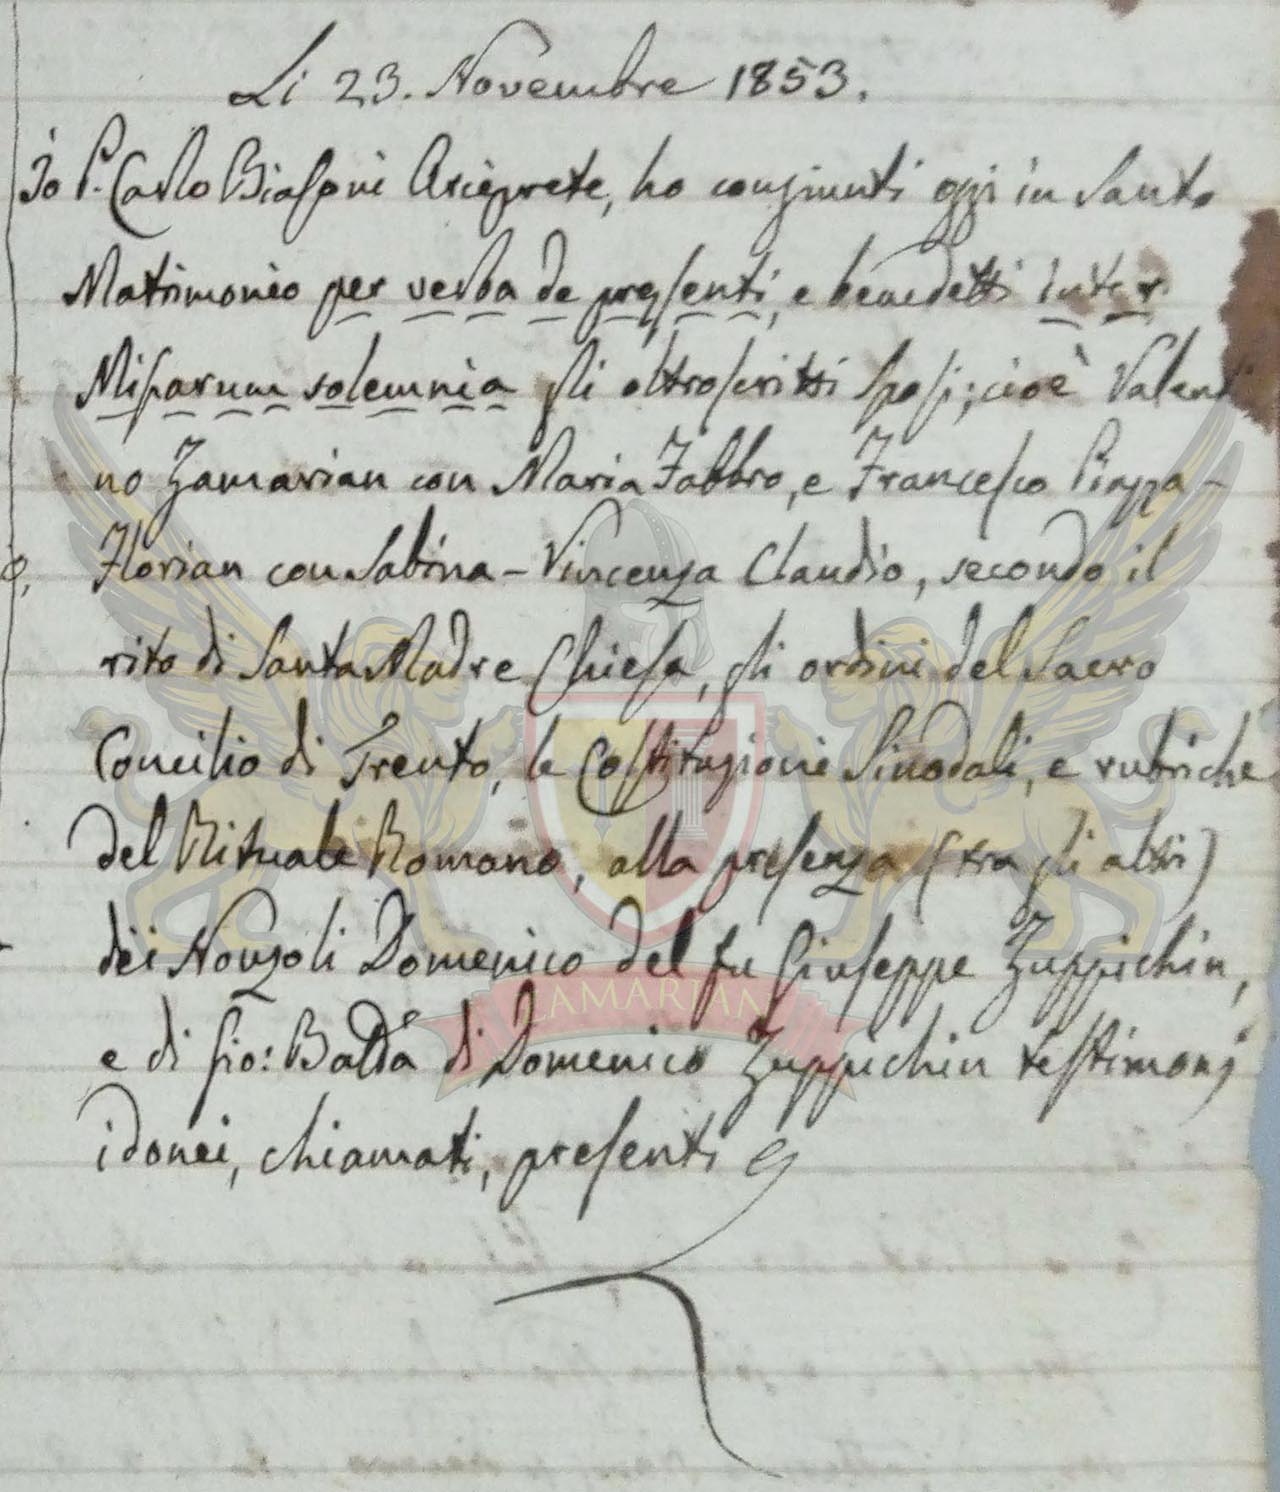 Li 23. Novembre 1853.
Io P. Carlo Biasoni Arciprete, ho congiunti oggi in Santo
Matrimonio per verba de presenti, e benedetti inter
Missarum solemnia gli oltroscritti Sposi; cioè Valenti
no Zamarian con Maria Fabbro, e Francesco Piazza-
Florian con Sabina-Vincenza Claudio, secondo il
rito di Santa Madre Chiesa, gli ordini del Sacro
Concilio di Trento, le Costituzioni Sinodali, e rubriche
del Rituale Romano, alla presenza (tra gli altri)
dei Nonzoli Domenico del fu Giuseppe Zuppichin,
e di Gio: Batta di Domenico Zuppichin testimonj
idonei, chiamati, presenti
ZAMARIAN